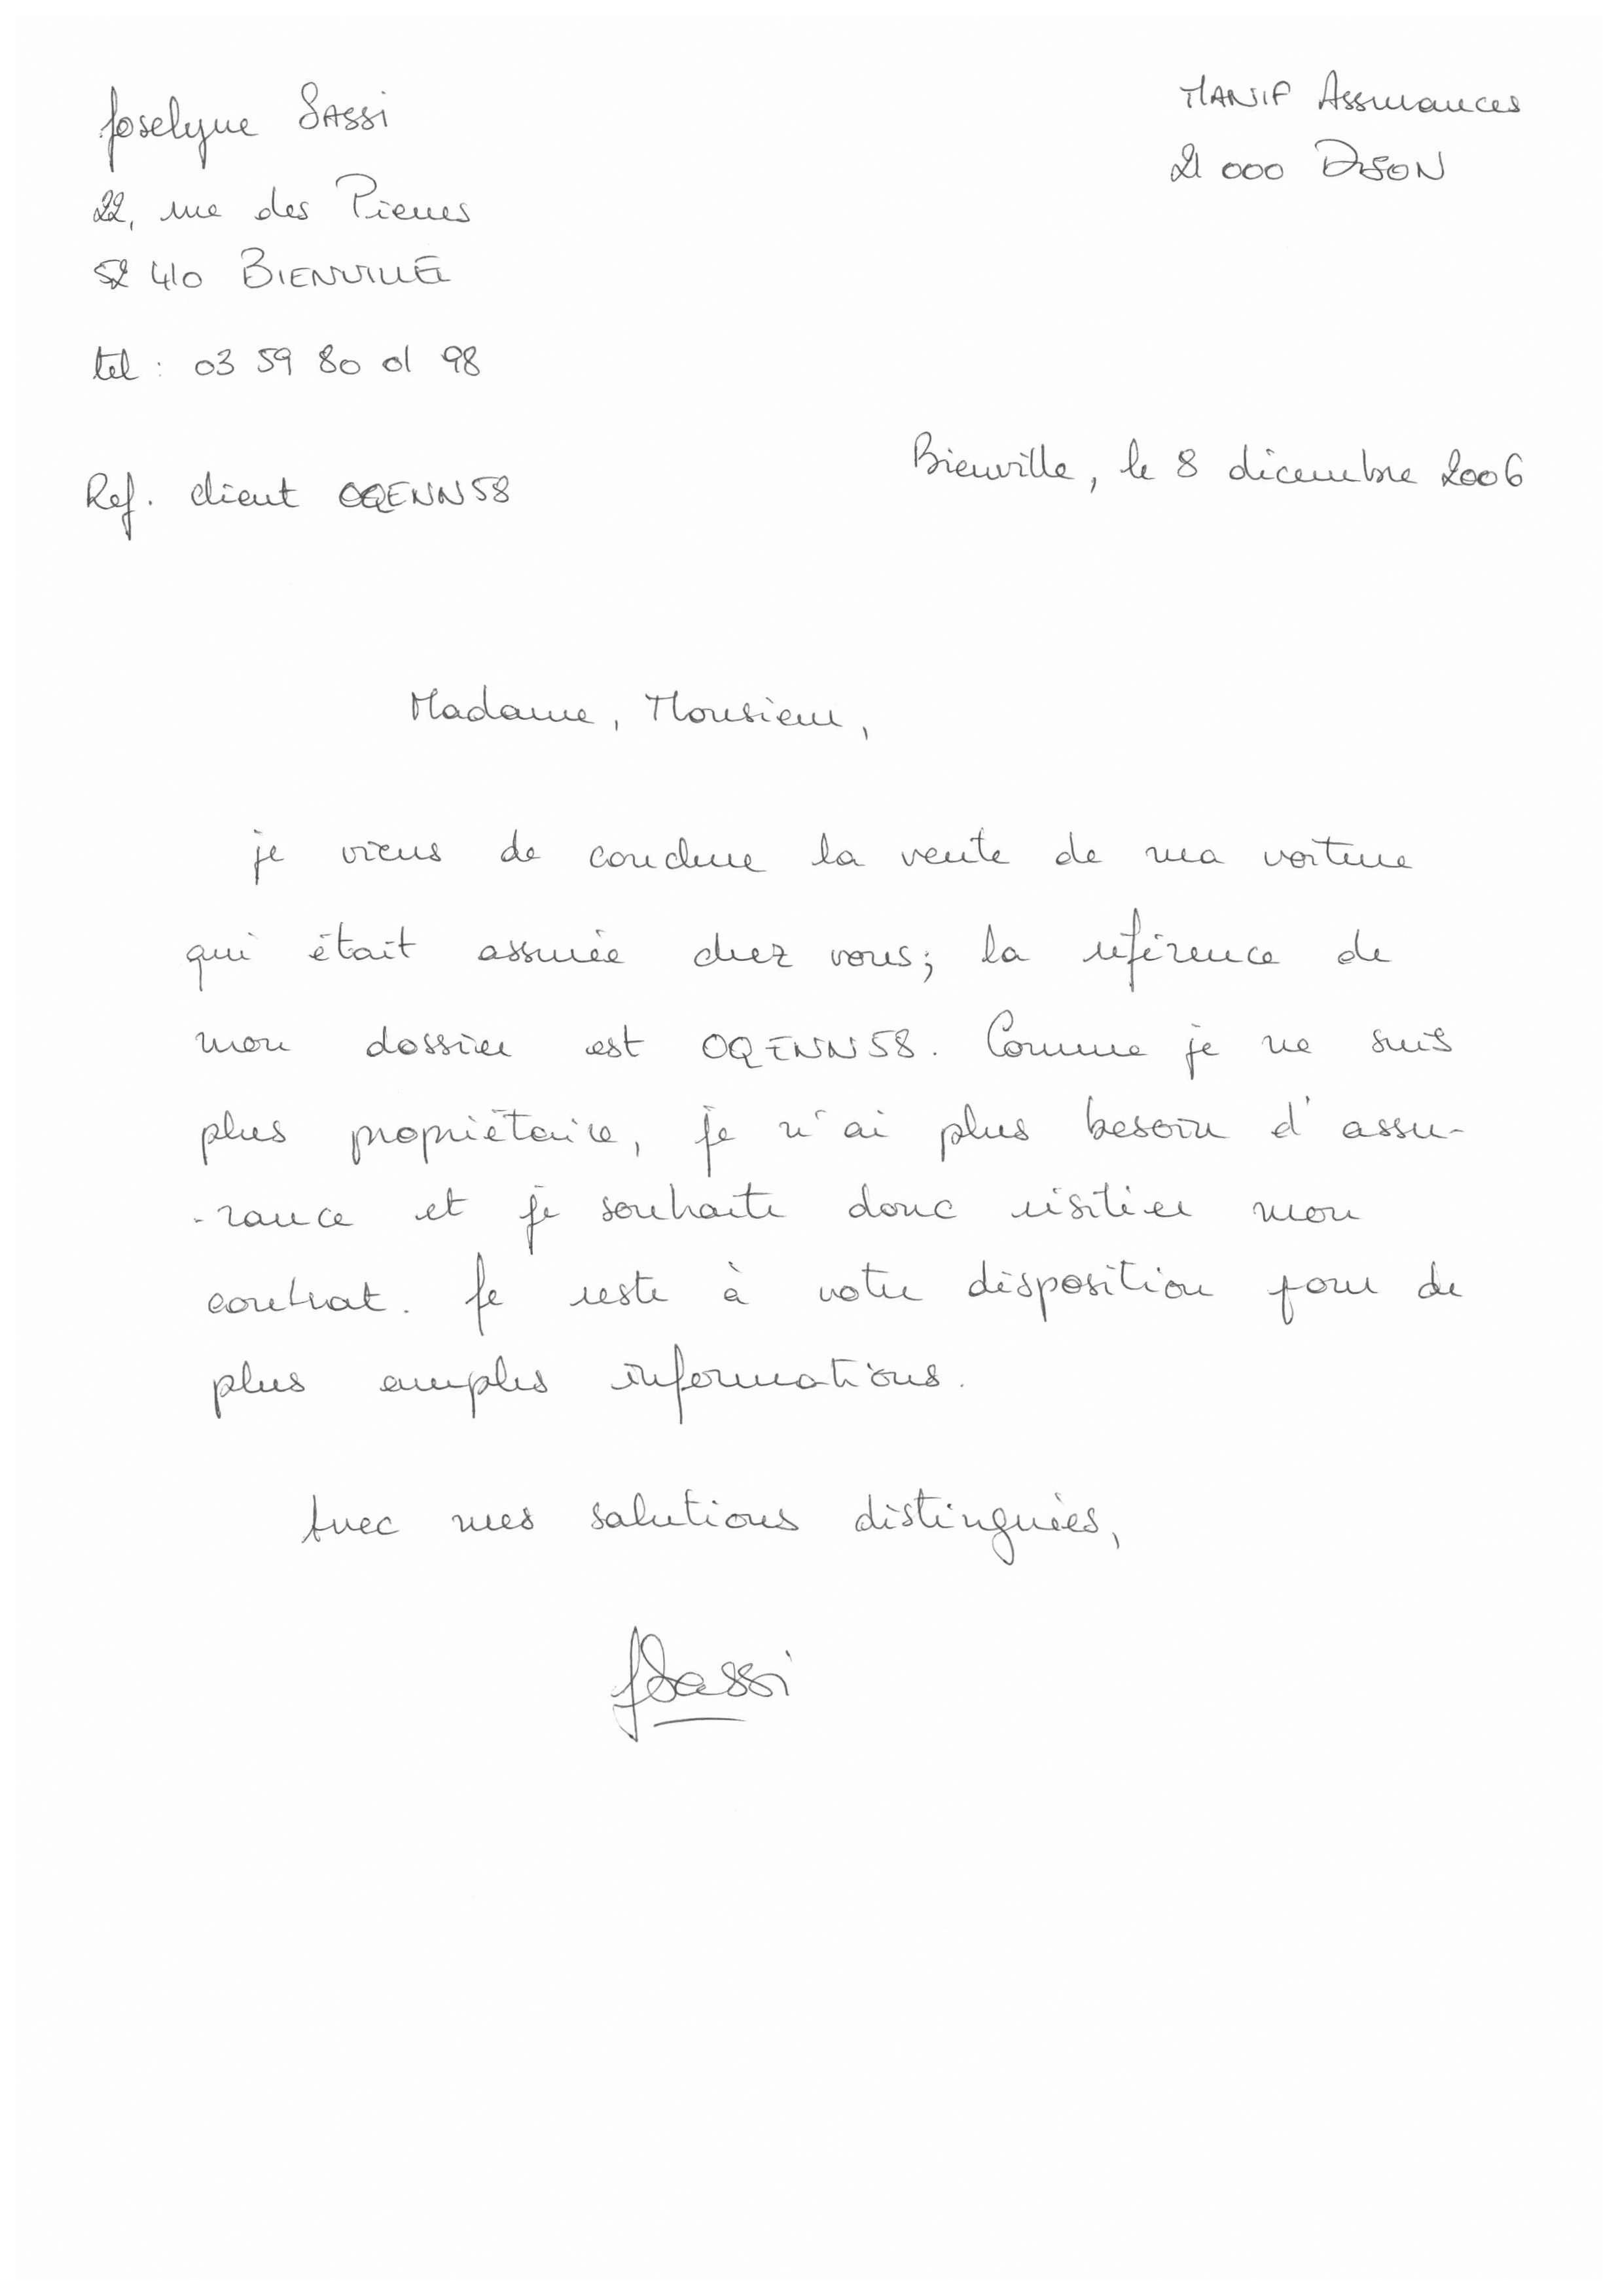 Joselyne SASSI
22, rue des Pierres
52 410 BIENVILLE
tel : 03 59 80 01 98
Ref. client OQENN58
MANIF Assurances
21 000 DIJON
Bienville, le 8 décembre 2006
Madame, Monsieur,
je viens de conclure la vente de ma voiture
qui était assurée chez vous; la référence de
mon dossier est OQENN58. Comme je ne suis
plus propriétaire, je n'ai plus besoin d'assu-
-rance et je souhaite donc résilier mon
contrat. Je reste à votre disposition pour de
plus amples informations.
Avec mes salutions distinguées,
JSassi